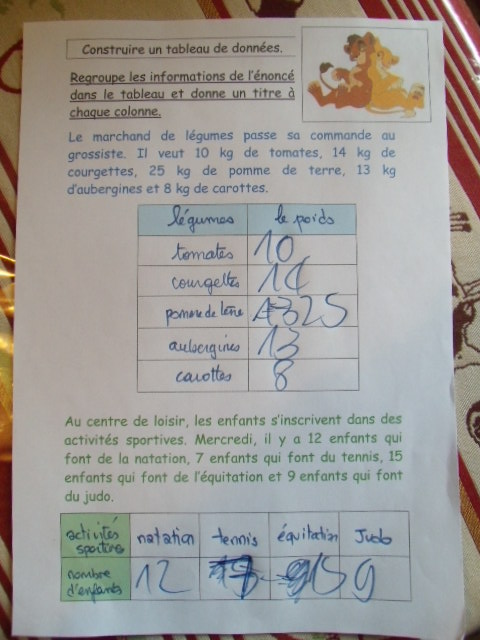 Construire un tableau de données.
Regroupe les informations de l'énoncé
dans le tableau et donne un titre à
chaque colonne.
Le marchand de légumes passe sa commande au
grossiste. Il veut 10 kg de tomates, 14 kg de
courgettes, 25 kg de pomme de terre, 13 kg
d'aubergines et 8 kg de carottes.
légumes le poids
tomates 10
courgettes 14
pomme de terre 25
aubergines 13
carottes 8
Au centre de loisir, les enfants s'inscrivent dans des
activités sportives. Mercredi, il y a 12 enfants qui
font de la natation, 7 enfants qui font du tennis, 15
enfants qui font de l'équitation et 9 enfants qui font
du judo.
activités natation tennis équitation Judo
sportives
nombre 12 15 9
d'enfants